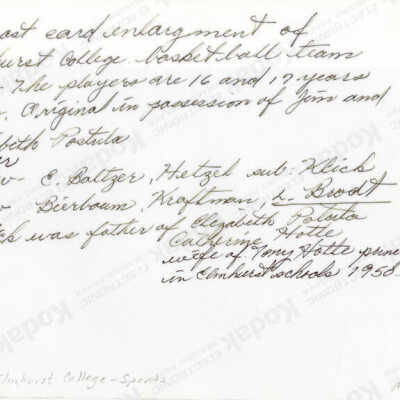 ost card enlargment of
hurst College basketball team
- The players are 16 and 17 years
. Original in possession of Jim and
beth Postula
er
w - E. Baltzer, Hetzel sub: Klick
w Bierbaum, Kraftman, L. Brodt
ck was father of Elizabeth Postula
Catherine Hotte
wife of Tony Hotte prin
in Elmhurst schools 1958
Elmhurst College - Sports